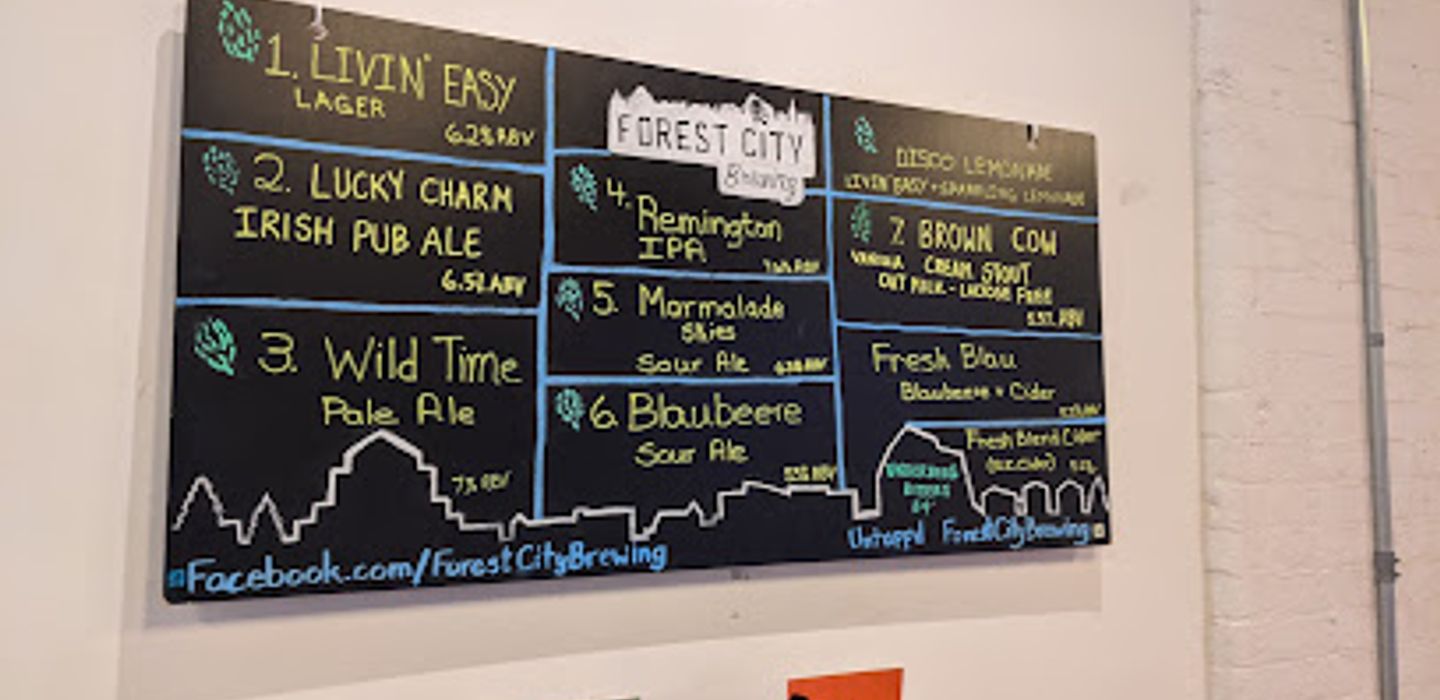 1. LIVIN' EASY
LAGER
6.2% ABV
2. LUCKY CHARM
IRISH PUB ALE
6.5% ABV
3. Wild Time
Pale Ale
7% ABV
FOREST CITY
Brewing
4. Remington
IPA
ABV
5. Marmalade
Skies
Sour Ale
ABV
6. Blaubeere
Sour Ale
ABV
DISCO LEMONADE
LIVIN' EASY + SPARKLING LEMONADE
7. BROWN COW
VANILLA CREAM STOUT
OAT MILK - LACTOSE FREE
ABV
Fresh Blau
Blaubeere + Cider
Fresh Blend Cider
Facebook.com/ForestCityBrewing
Untappd ForestCityBrewing